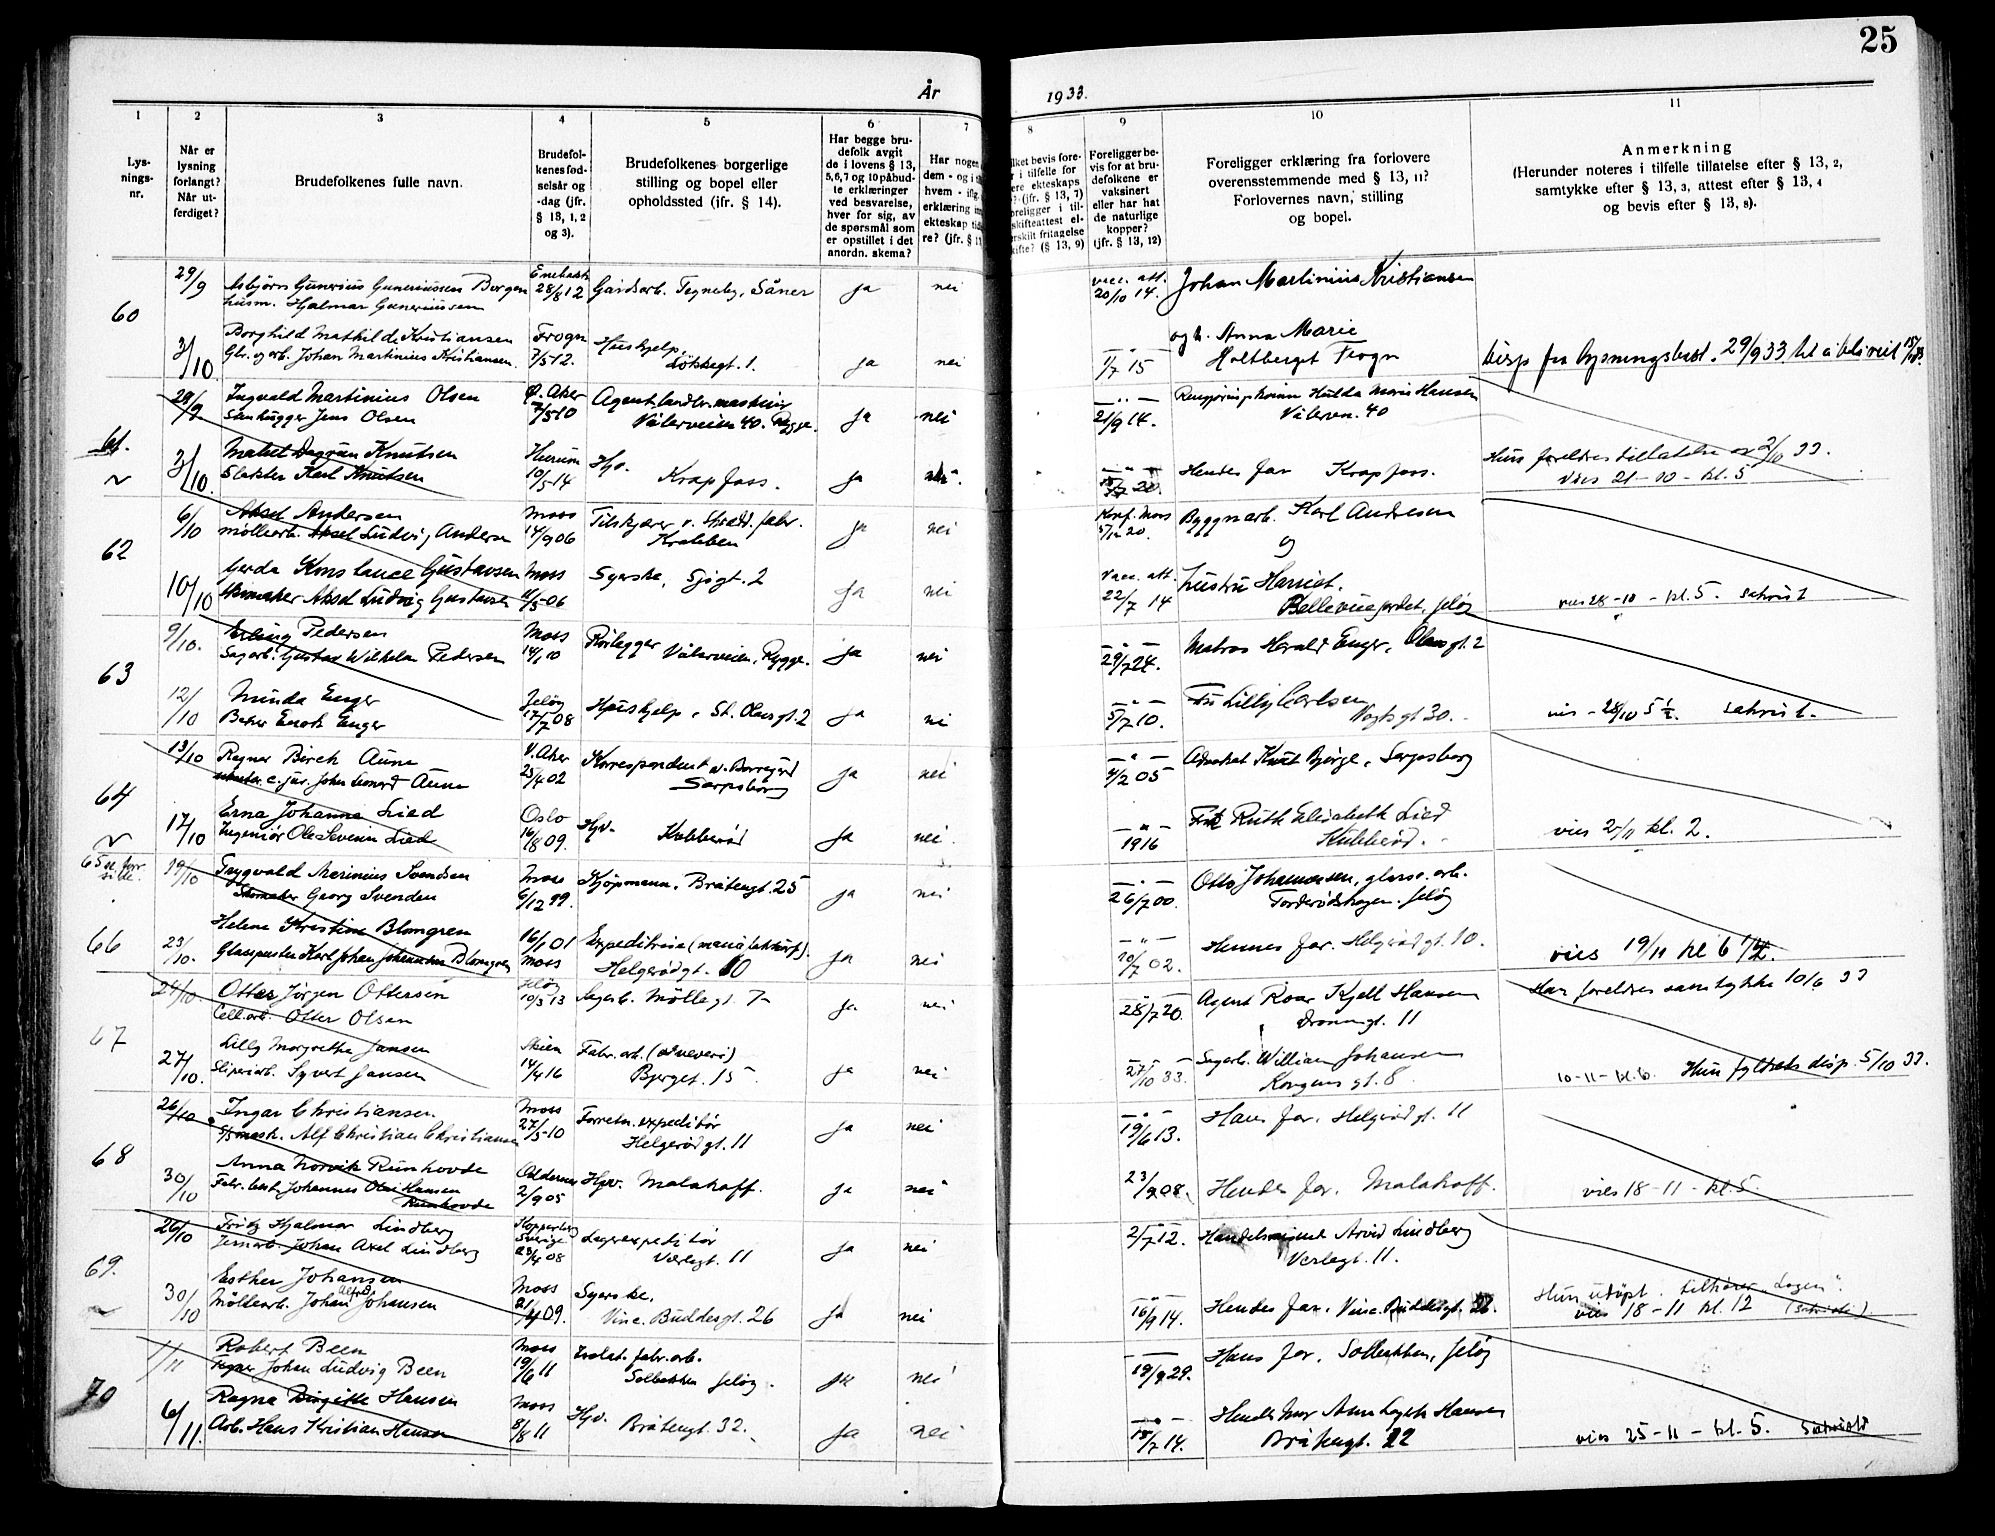 25
År 1933.
1 2 3 4 5 6 7 8 9 10 11
Lys-
nings-
nr.
Når er
lysning
forlangt?
Når ut-
ferdiget?
Brudefolkenes fulle navn.
Brudefol-
kenes fød-
selsår og
-dag (jfr.
§ 13, 1, 2
og 3).
Brudefolkenes borgerlige
stilling og bopel eller
opholdssted (ifr. § 14).
Har begge bru-
defolk avgit
de i lovens § 13,
5, 6, 7 og 10 påbud-
te erklæringer
ved besvarelse,
hver for sig, av
de spørsmål som
er opstillet i det
anordn. skema?
Har nogen
dem - og i
hvem - ifg.
erklæring
ekteskap
re? (jfr. § 1
lket bevis fore-
r i tilfelle for
ere ekteskaps
? (jfr. § 13, 7)
oreligger i til-
skifteattest el-
rskilt fritagelse
kifte? (§ 13, 9)
Foreligger be-
vis for at bru-
defolkene er
vaksinert
eller har hat
de naturlige
kopper?
(jfr. § 13, 12)
Foreligger erklæring fra forlovere
overensstemmende med § 13, 11?
Forlovernes navn, stilling
og bopel.
Anmerkning
(Herunder noteres i tilfelle tillatelse efter § 13, 2,
samtykke efter § 13, 3, attest efter § 13, 4
og bevis efter § 13, 8).
60 29/9 Asbjørn Gunerius Gunerriussen Bergen Enebakk 28/8 12 Gårdsarb. Tegneby, Såner ja nei vacc. att. 20/10 14. Johan Martinius Kristiansen
husm. Hjalmar Gunerriussen
3/10 Borghild Mathilde Kristiansen Frogn 7/5 12. Hushjelp, ja nei 1/7 15 og h. Anna Marie
Gbr. og arb. Johan Martinius Kristiansen. gt. 1. Holtberget Frogn disp fra lysningsbest. 29/9 33
61. 29/9 Ingvald Martinius Olsen Ø. Aker 7/5 10 Agent landbr. maskiner ja nei 21/9 14. Hulda Marie Hansen
Stenhugger Jens Olsen Vålerveien 40. Rygge. Vålervn. 40
3/10 Mabel Dagrun Knutsen Hurum 10/5 14 Hjv. ja nei. Hendes far Krapfoss. Hun foreldres tillatelse
Slakter Karl Knutsen Krapfoss. Vies 21-10 - kl. 5
62 6/10 Aksel Andersen Moss 17/9 06 Tilskjærer v. ja nei Konf. Moss 5/12 20. Byggnarb. Karl Andresen
møllearb. Aksel Ludvig Andersen og
10/10 Gerda Konstance Gustavsen Moss Syerske, Sjøgt. 2 ja nei Vacc. att. 22/7 14 hustru Harriet,
Skomaker Aksel Ludvig Gustavsen 06 Jeløy vies 28-10 - kl. 5.
63 9/10. Erling Pedersen Moss 14/1 10 Rørlegger Vålerveien, Rygge. ja nei 29/7 24. Matros Harald Enger, Olavs gt. 2
Sagarb. Gustav Wilhelm Pedersen
12/10 Minda Enger Jeløy 17/7 08 Hushjelp, St. Olavs gt. 2 ja nei 5/7 10. Fru Lilly Carlsen
Baker Enok Enger Vogts gt 30. vies - 28/10 5 1/2.
64 13/10 Ragnar Birch Aune V. Aker 25/4 02 Korrespondent v. Borregård ja nei 4/2 05 Advokat Knut Bjørge, Sarpsborg
c. jur. John Leonard Aune Sarpsborg
17/10 Erna Johanne Lied Oslo 16/8 09. Hjv. Kubberød ja nei. 1916 Frk Ruth Elisabeth Lied
Ingeniør Ole Severin Lied Kubberød. vies 2/11 kl. 2.
65
19/10 Trygvald Marinius Svendsen Moss 6/12 99. Kjøpmann. Bråtengt. 25 ja nei 26/7 00. Otto Johannessen, glass. arb.
Skomaker Georg Svendsen Torderødshagen. Jeløy
66 Helene Kristine Blomgren 16/1 01 Expeditrise
23/10. Glasspuster Karl Johan Johannesen Blomgren Moss Helgerødgt. 10 ja nei 10/7 02. Hennes far. Helgerødgt. 10. vies 19/11 kl 6 1/2.
67 24/10 Otter Jørgen Ottersen Jeløy 10/3 13 Sagarb. Møllegt 7 ja nei 28/7 20. Agent Roar Kjell Hansen Han foreldres samtykke 10/6 33
Cell. arb. Otter Olsen Dronn. gt. 11
27/10. Lilly Margrethe Jansen Skien 14/4 16 Fabr. arb. (v. veveri) ja nei 27/10 33. Sagarb. William Johansen
Sliperiarb. Syvert Jansen Bjerget. 15 Kongens gt. 8 10-11-kl. 6. Hun fylkets disp. 5/10 33.
68 26/10 Ingar Christiansen Moss 27/5 10 Forretn. expeditør ja nei 19/6 13. Hans far. Helgerødgt. 11
mask. Alf Christian Christiansen Helgerødgt. 11
30/10 Anna Norvik Runhovde Oddernes 2/9 05 Hjv. Malakoff. ja nei 23/9 08. Hendes far. Malakoff. vies 18-11-kl. 5.
Fabr. best. Johannes Olai Hansen
Runhovde
69. 26/10 Fritz Hjalmar Lindberg Sverige 23/4 08 Lagerexpeditør ja nei 2/7 12. Arvid Lindberg
Jernarb. Johan Axel Lindberg Verlegt. 11 Verlegt. 11.
30/10 Esther Johansen Moss 09. Syerske. ja nei 16/9 14. Hendes far. Vinc. Buddesgt. 26. Hun udøpt. tilhører „Logen".
Møllearb. Johan Alfred Johansen Vinc. Buddesgt. 26 vies 18-11 kl. 12
70 1/11 Robert Been Moss 19/6 11 Isolat. fabr. arb. ja nei 19/9 29. Hans far, Solbakken, Jeløy
Johan Ludvig Been Solbakken Jeløy.
6/11. Ragna Birgitte Hansen Moss 8/8 11 Hjv. Bråtengt. 32. ja nei 15/7 14. Hendes mor Hansen
Arb. Hans Kristian Hansen Bråtengt. 22 vies 25-11-kl. 5.